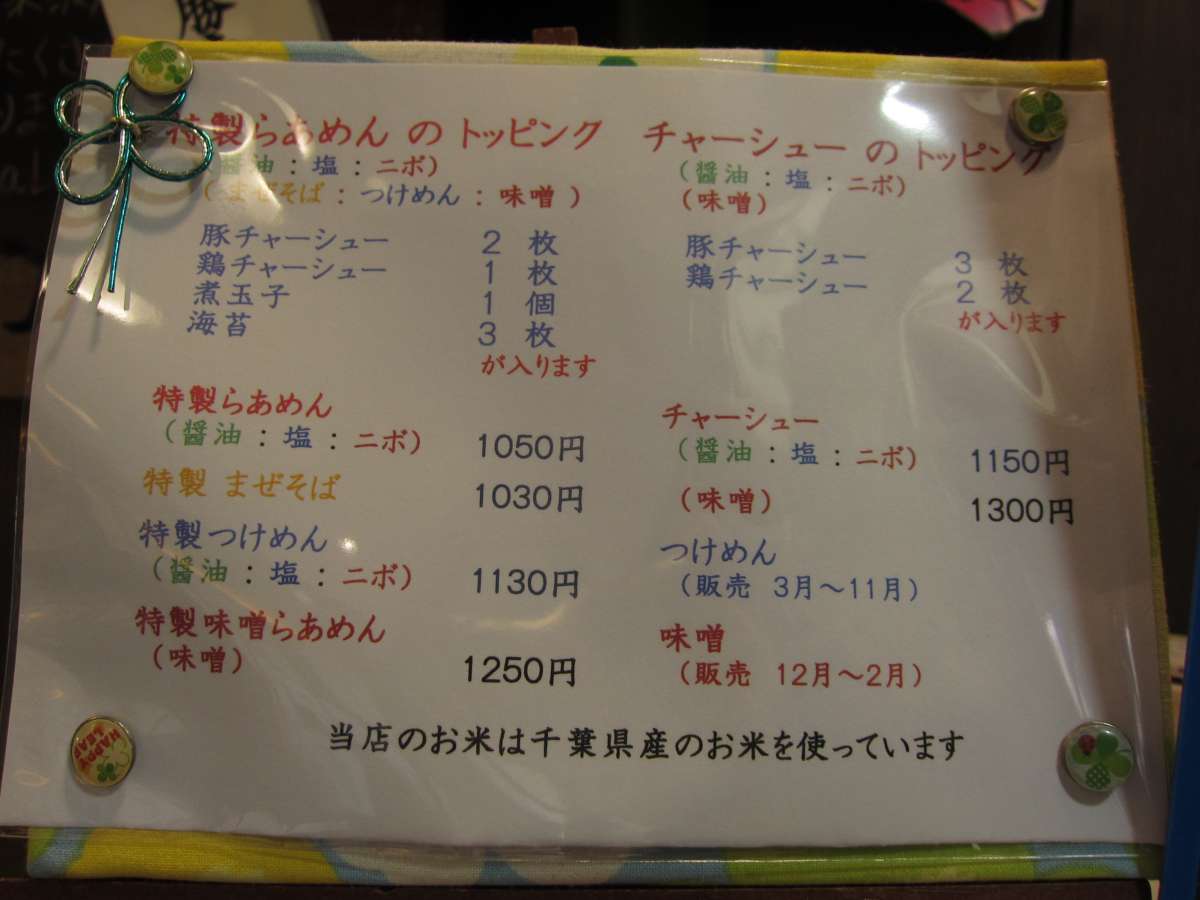 特製らあめん の トッピング
(醤油 : 塩 : ニボ)
( まぜそば : つけめん : 味噌 )
豚チャーシュー 2 枚
鶏チャーシュー 1 枚
煮玉子 1 個
海苔 3 枚
が入ります
特製らあめん
(醤油 : 塩 : ニボ) 1050円
特製 まぜそば 1030円
特製つけめん
(醤油 : 塩 : ニボ) 1130円
特製味噌らあめん
(味噌) 1250円
チャーシュー の トッピング
(醤油 : 塩 : ニボ)
(味噌)
豚チャーシュー 3 枚
鶏チャーシュー 2 枚
が入ります
チャーシュー
(醤油 : 塩 : ニボ) 1150円
(味噌) 1300円
つけめん
(販売 3月～11月)
味噌
(販売 12月～2月)
当店のお米は千葉県産のお米を使っています
HAPPY
LEAF